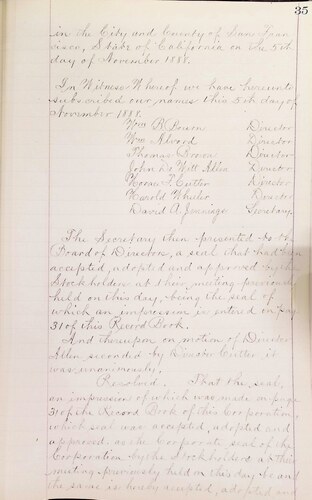 35
in the City and County of San Fran
cisco, State of California on the 5th
day of November 1888.
In Witness Whereof we have hereunto
subscribed our names this 5th day of
November 1888.
Wm B Bourn Director
Wm Alvord Director
Thomas Brown Director
John De Witt Allen Director
Horace L Cutler Director
Harold Wheeler Director
David A. Jennings Secretary
The Secretary then presented to the
Board of Directors, a seal that had been
accepted, adopted and approved by the
Stockholders at their meeting previously
held on this day, being the seal of
which an impression is entered on page
31 of this Record Book.
And thereupon on motion of Director
Allen seconded by Director Cutler, it
was unanimously,
Resolved. That the seal,
an impression of which was made on page
31 of the Record Book of this Corporation,
which seal was accepted, adopted and
approved, as the Corporate seal of the
Corporation by the Stockholders at their
meeting previously held on this day be and
the same is hereby accepted, adopted and